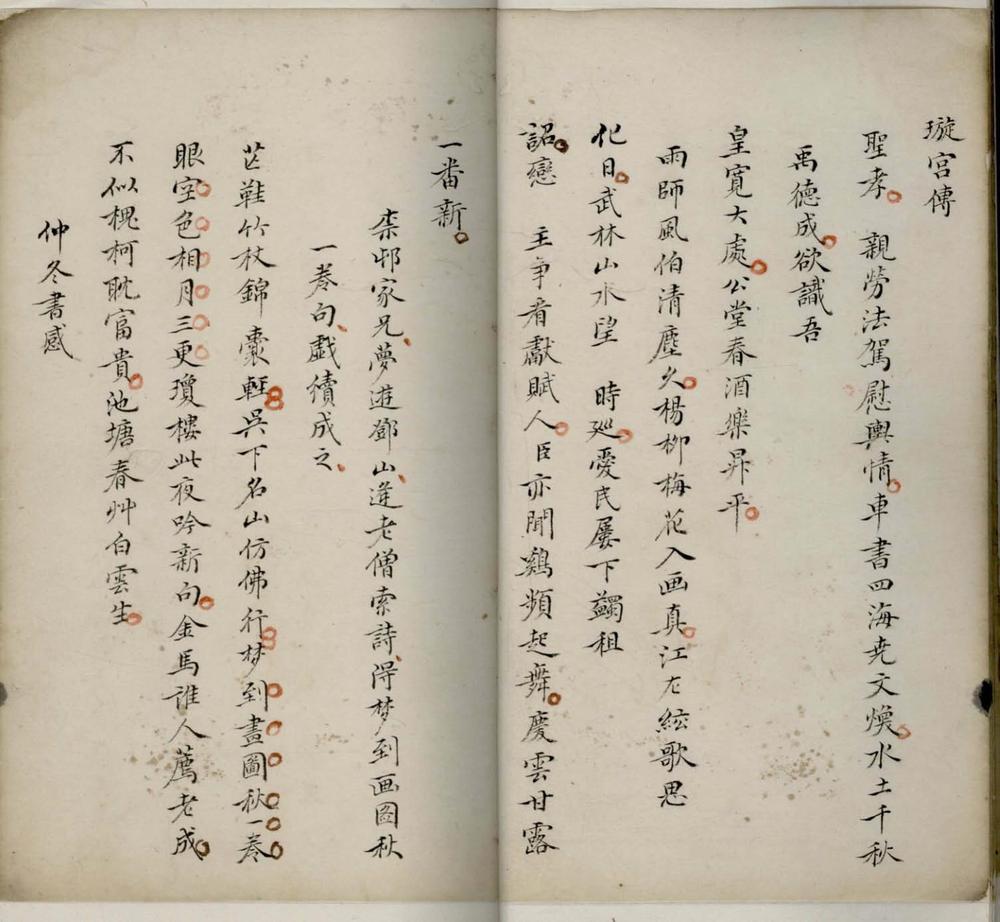 璇宮傳
聖孝 親勞法駕慰輿情車書四海堯文煥水土千秋
禹德成欲識吾
皇寬大處公堂春酒樂昇平
雨師風伯清塵久楊柳梅花入画真江左絃歌思
化日武林山水望 時巡愛民屢下蠲租
詔戀 主爭看獻賦人臣亦聞鷄頻起舞慶雲甘露
一番新
柰邨家兄夢遊鄧山逢老僧索詩得梦到画图秋
一卷句戯續成之
芒鞋竹杖錦囊輕吳下名山仿佛行梦到畫圖秋一卷
眼空色相月三更瓊樓此夜吟新句金馬誰人薦老成
不似槐柯耽富貴池塘春艸白雲生
仲冬書感